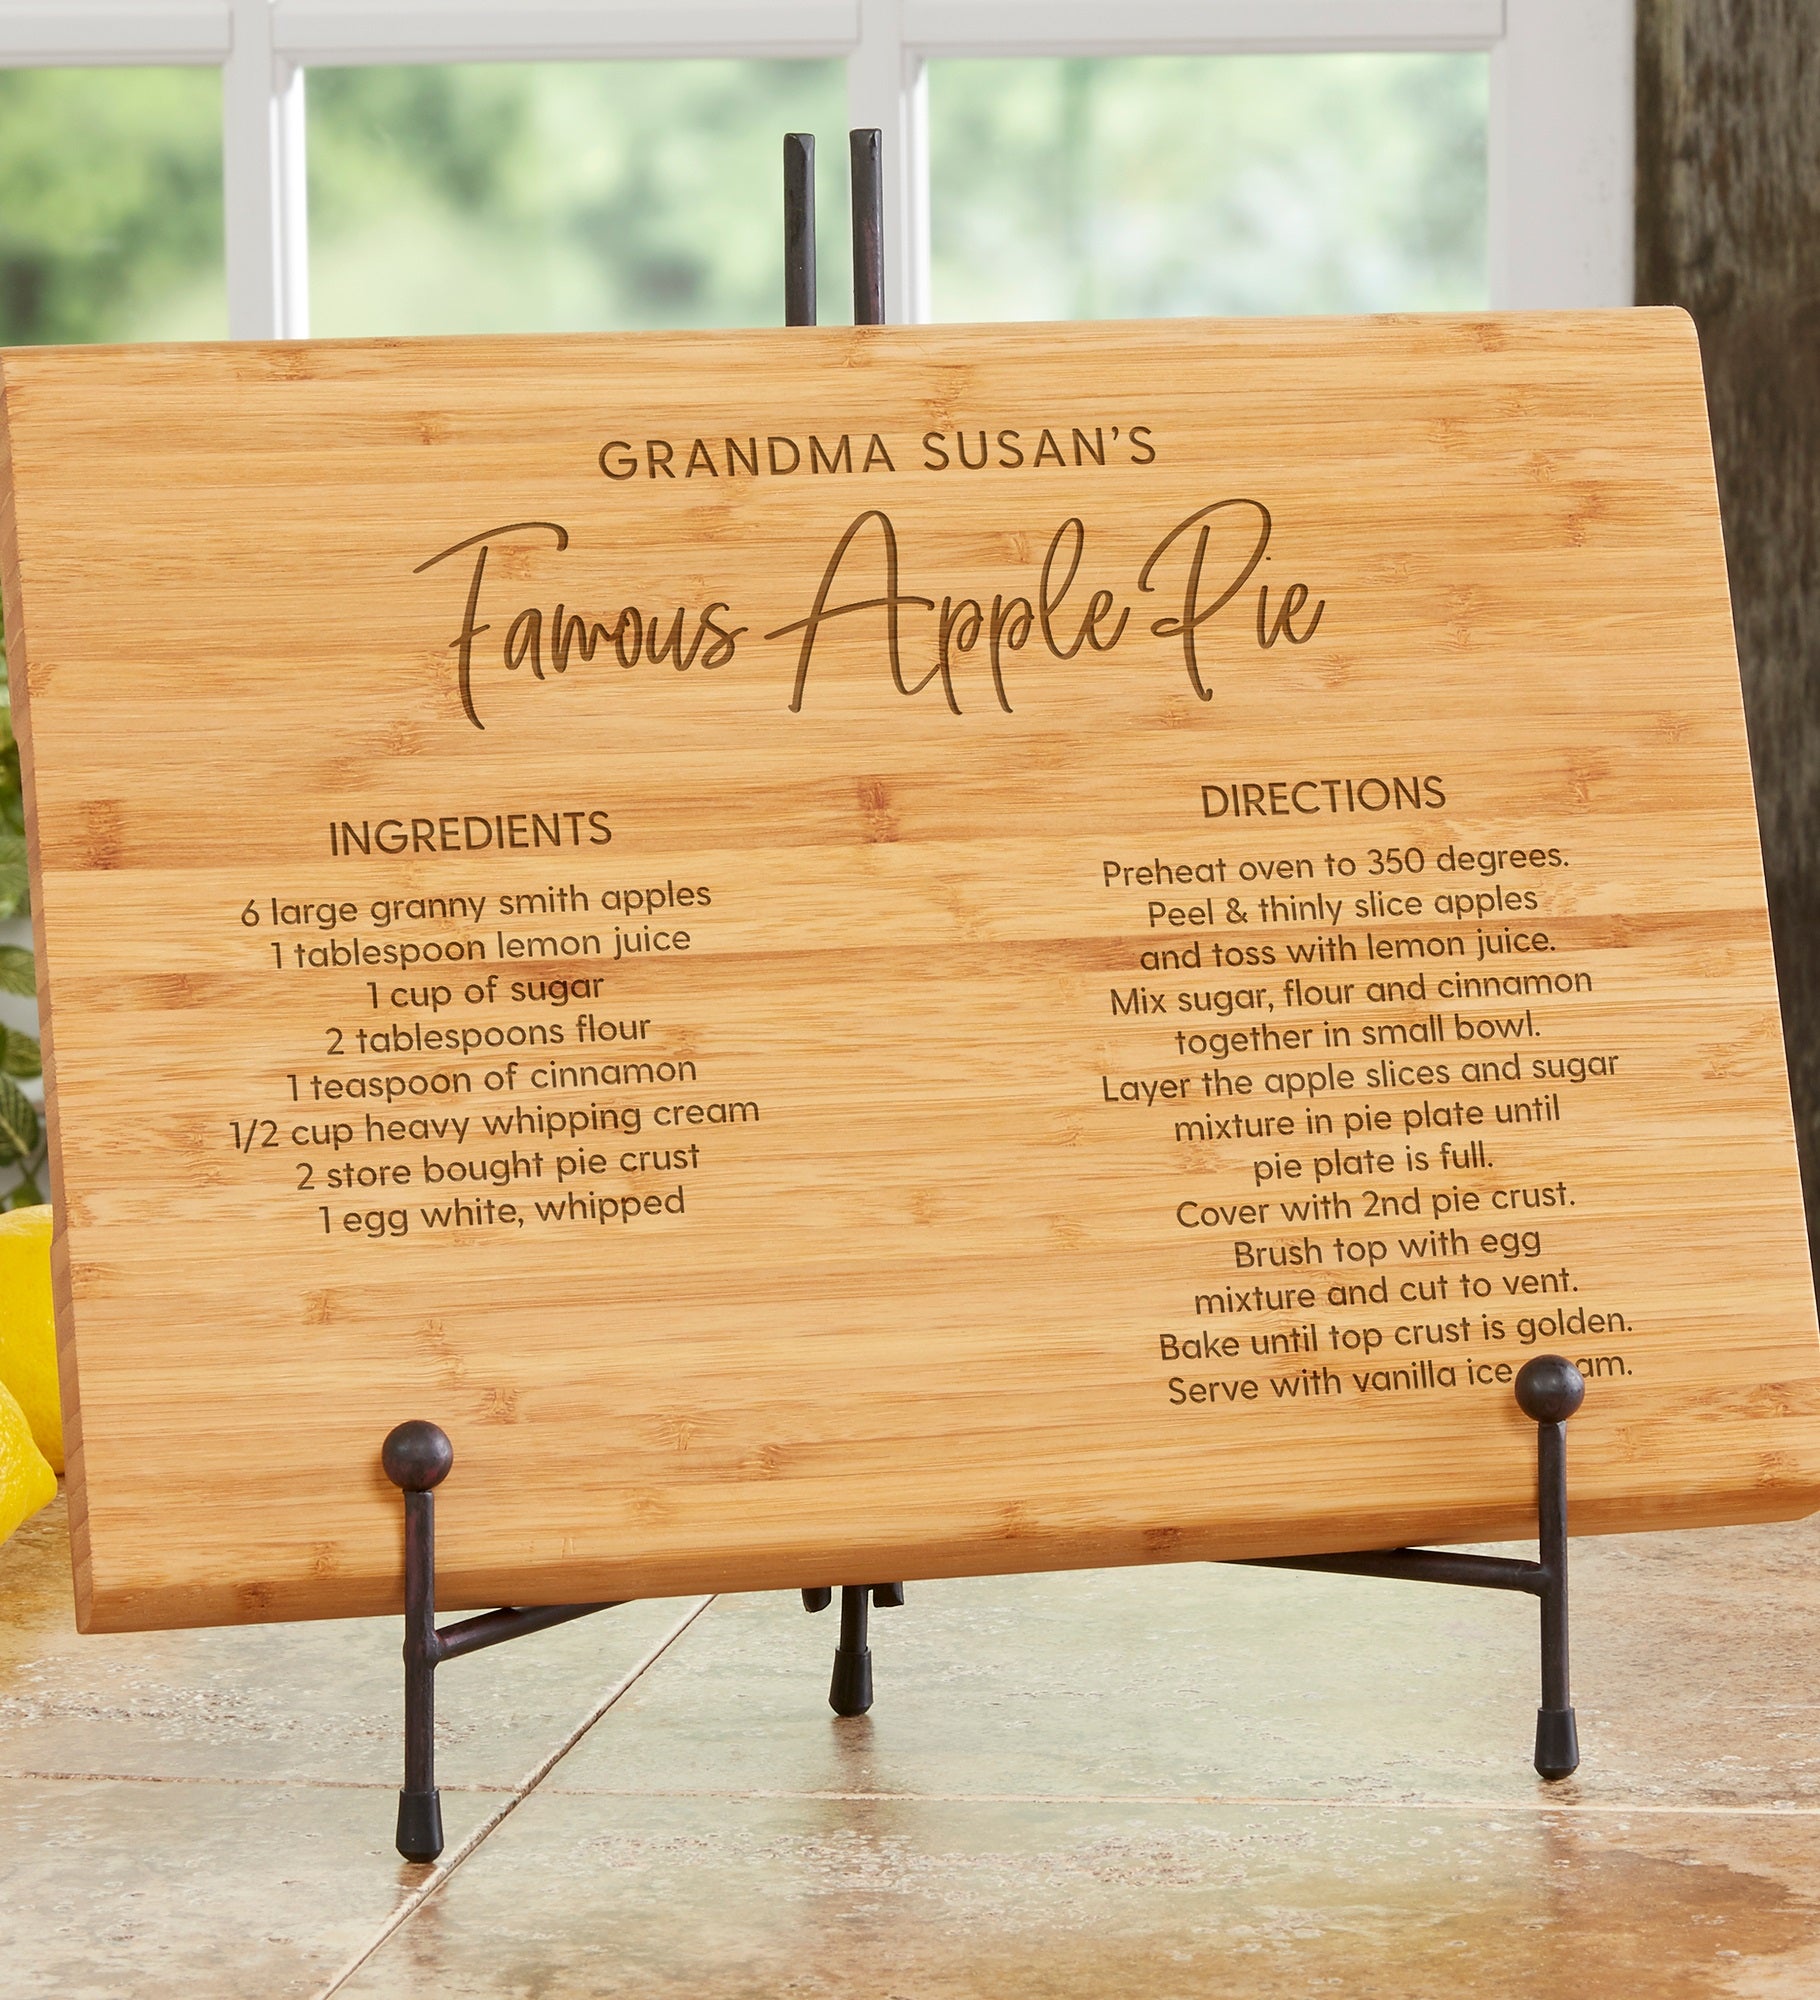 GRANDMA SUSAN'S
Famous Apple Pie
INGREDIENTS
6 large granny smith apples
1 tablespoon lemon juice
1 cup of sugar
2 tablespoons flour
1 teaspoon of cinnamon
1/2 cup heavy whipping cream
2 store bought pie crust
1 egg white, whipped
DIRECTIONS
Preheat oven to 350 degrees.
Peel & thinly slice apples
and toss with lemon juice.
Mix sugar, flour and cinnamon
together in small bowl.
Layer the apple slices and sugar
mixture in pie plate until
pie plate is full.
Cover with 2nd pie crust.
Brush top with egg
mixture and cut to vent.
Bake until top crust is golden.
Serve with vanilla ice